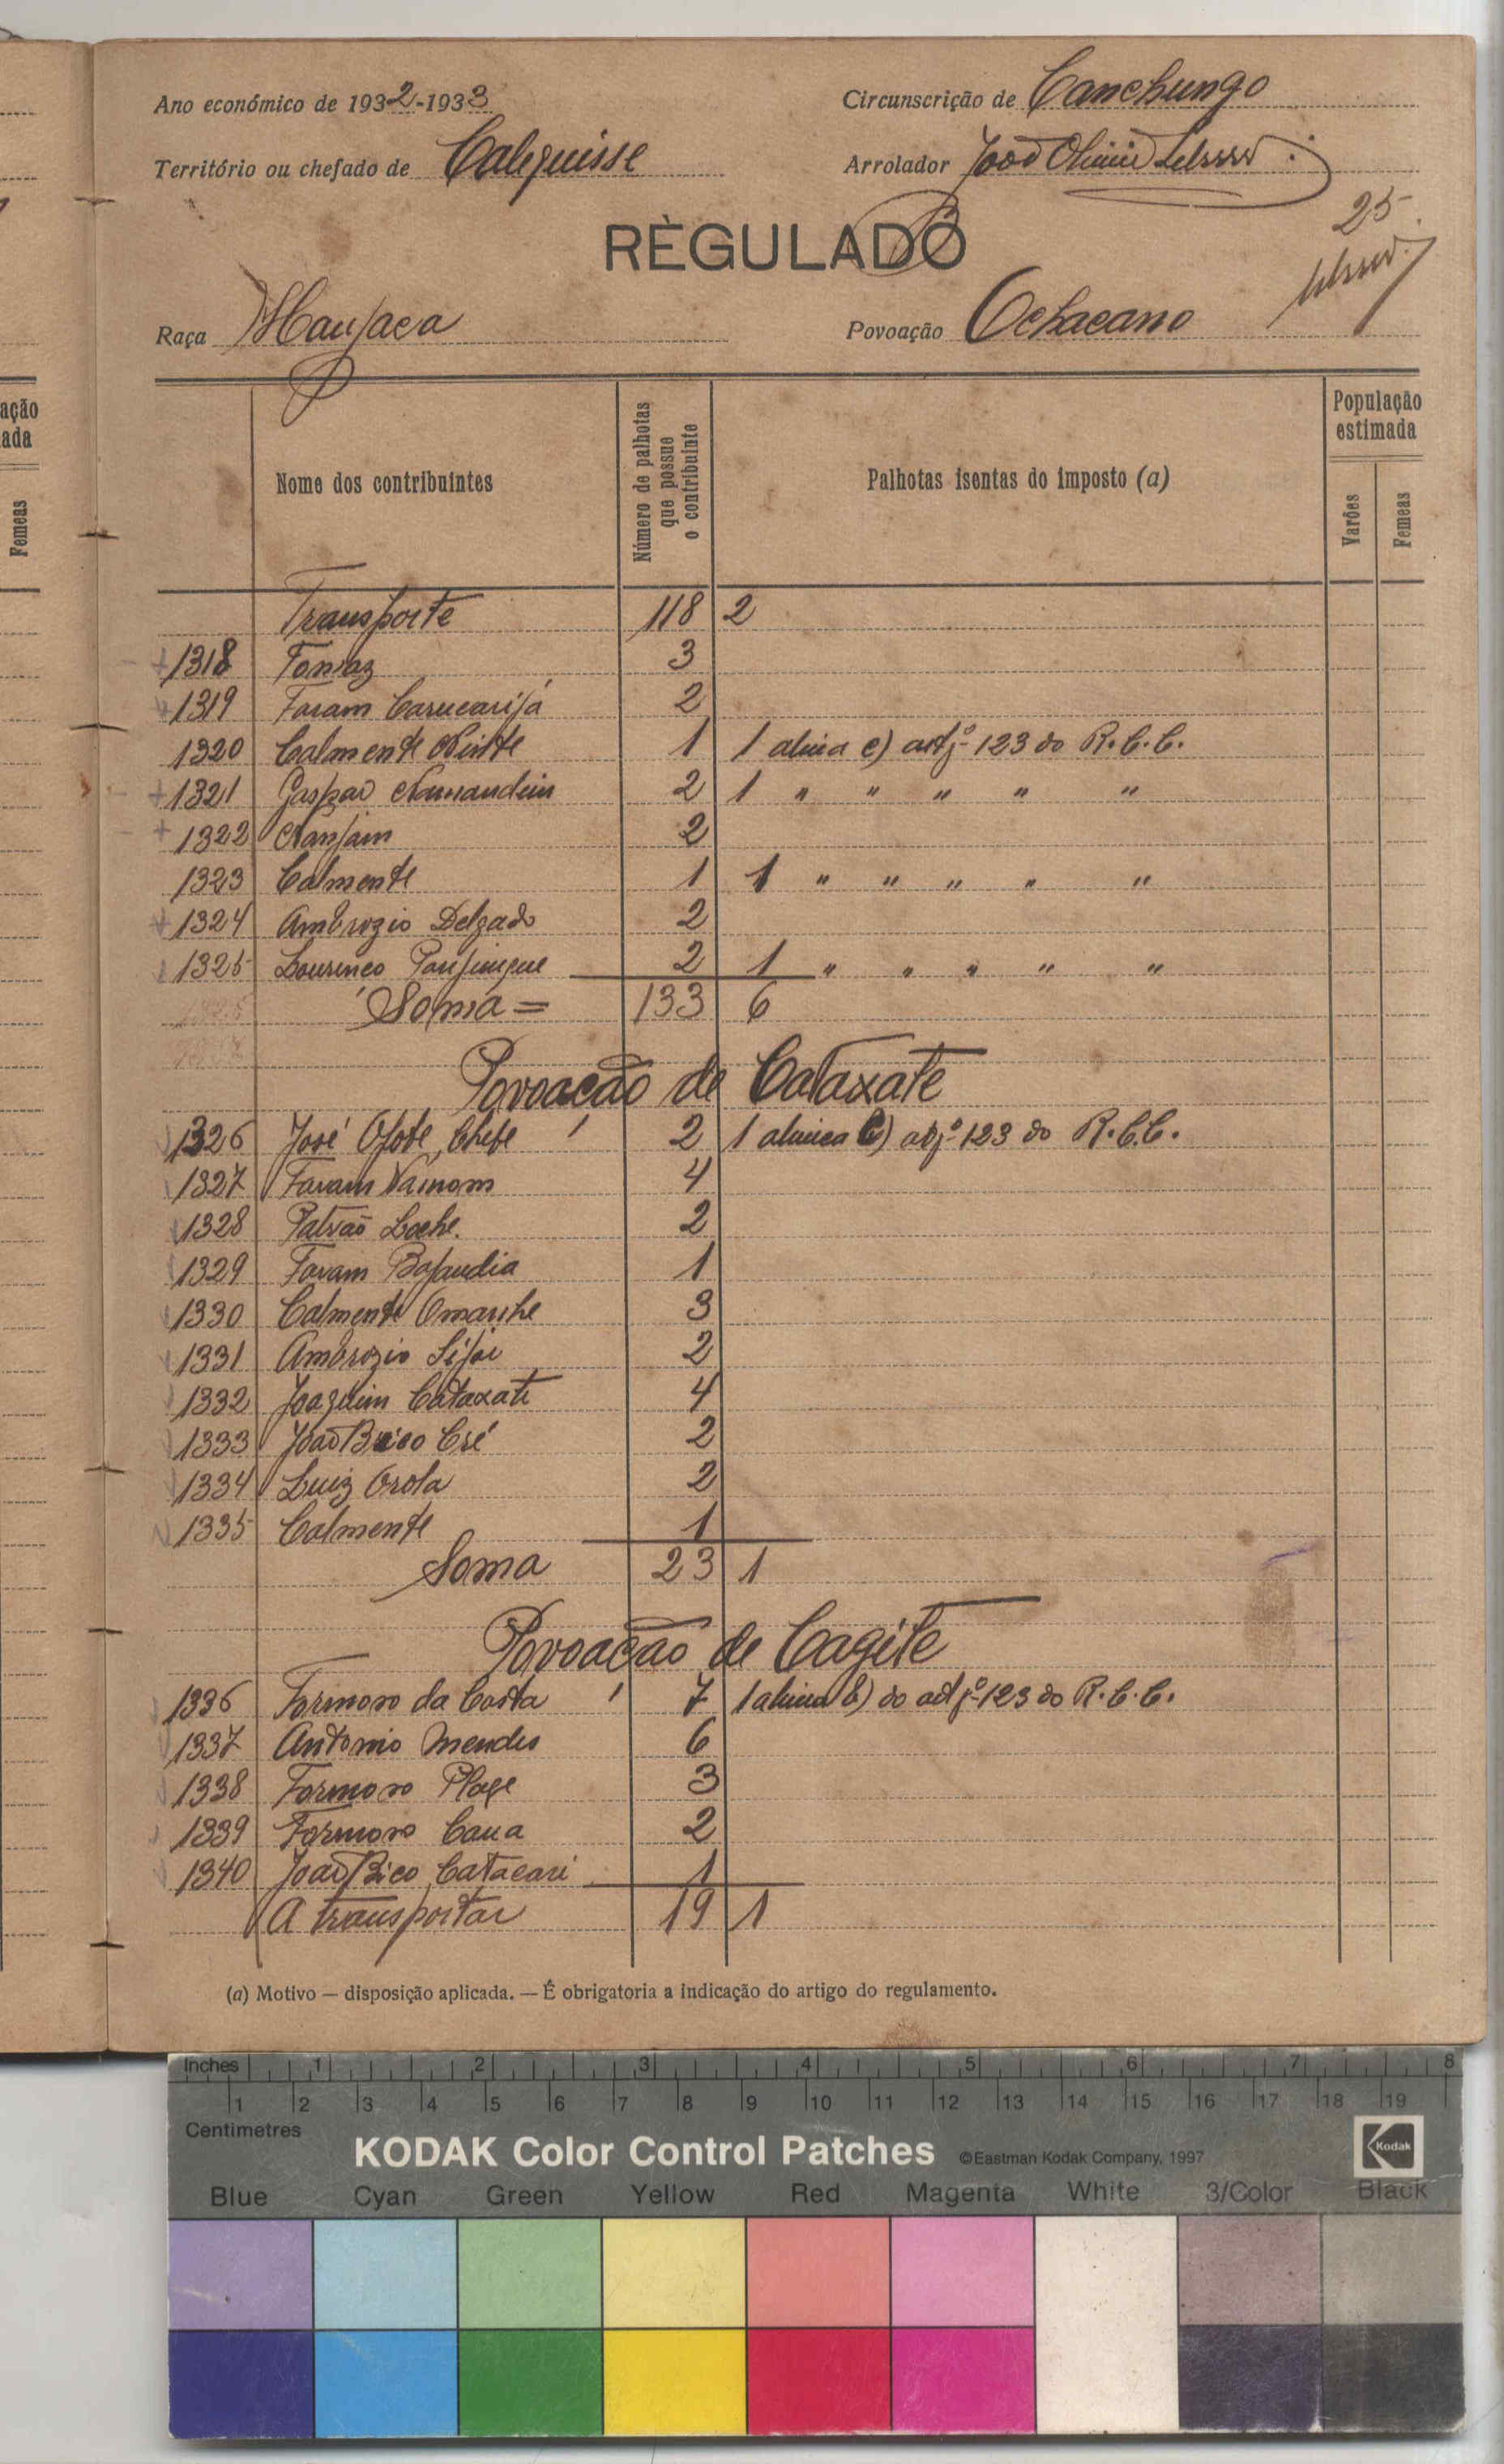 Ano económico de 1932-1933
Circunscrição de Canchungo
Território ou chefado de Calequisse
Arrolador João
25
RÈGULADO
Raça Manjaca
Povoação Ochacano
Nome dos contribuintes
Número de palhotas que possue o contribuinte
Palhotas isentas do imposto (a)
População estimada
Varões
Femeas
ação
ada
Femeas
Transporte 118 2
1318 Tomaz 3
1319 Faram Carucarijá 2
1320 Calmente 1 1 alinia c) artgº 123 do R.C.C.
1321 Gaspar 2 1 " " " " "
1322 Nanjam 2
1323 Calmente 1 1 " " " " "
1324 Ambrozio Delgado 2
1325 Lourenco 2 1 " " " " "
Soma = 133 6
Povoação de Cataxate
1326 José Ofote, Chefe 2 1 alinea b) atgº 123 do R.C.C.
1327 Faram Namom 4
1328 Patrão Loche. 2
1329 Faram Bajandia 1
1330 Calmente Omanhe 3
1331 Ambrozio Sijoi 2
1332 Joaquim Cataxate 4
1333 João Bico Cré 2
1334 Luiz Orola 2
1335 Calmente 1
Soma 23 1
Povoação de Cagite
1336 Formoso da Costa 7 1 alinia b) do artgº 123 do R.C.C.
1337 Antonio Mendes 6
1338 Formoso 3
1339 Formoso Caua 2
1340 João Bico Catacari 1
A transportar 19 1
(a) Motivo — disposição aplicada. — É obrigatoria a indicação do artigo do regulamento.
Inches 1 2 3 4 5 6 7 8
1 2 3 4 5 6 7 8 9 10 11 12 13 14 15 16 17 18 19
Centimetres
KODAK Color Control Patches ©Eastman Kodak Company, 1997 Kodak
Blue Cyan Green Yellow Red Magenta White 3/Color Black